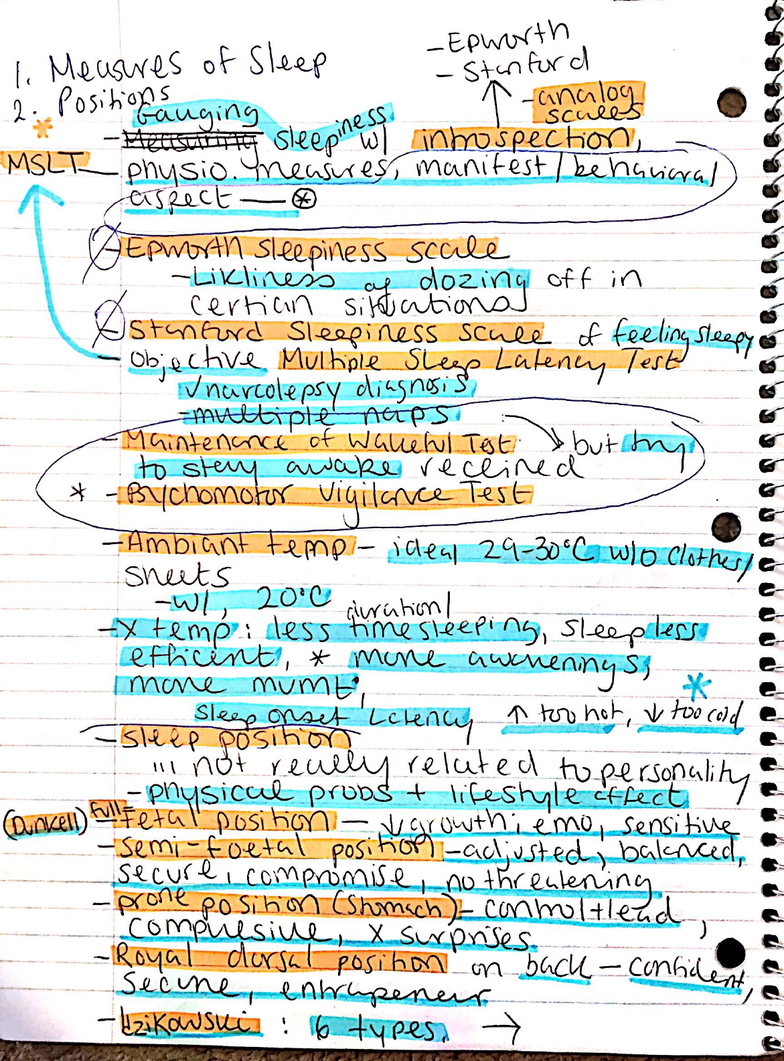 1. Measures of Sleep
2. Positions
- Epworth
- Stanford
- analog scales
* Gauging
- Measuring sleepiness w/ introspection,
MSLT - physio. measures, manifest/behavioral
aspect — *
- Epworth sleepiness scale
- Likliness of dozing off in
certian situations
- Stanford Sleepiness scale of feeling sleepy
- Objective Multiple Sleep Latency Test
√ narcolepsy diagnosis
- multiple naps
- Maintenance of Wakeful Test → but try
to stay awake
* - Psychomotor Vigilance Test
- Ambiant temp - ideal 29-30°C w/o clothes/
sheets
- w/, 20°C
duration/
- X temp: less time sleeping, sleep less
efficent, * more awakenings,
more mvmt,
*
Sleep onset Latency ↑ too hot, ↓ too cold
- Sleep position
... not really related to personality
- physical probs + lifestyle effect
(Dunkell) full = - fetal position - ↓ growth; emo, sensitive
- semi-foetal position - adjusted, balanced,
secure, compromise, no threatening
- prone position (stomach) - control+lead,
compulsive, X surprises.
- Royal dorsal position on back - confident,
secure, entrapeneur
- Izikowski : 6 types. →